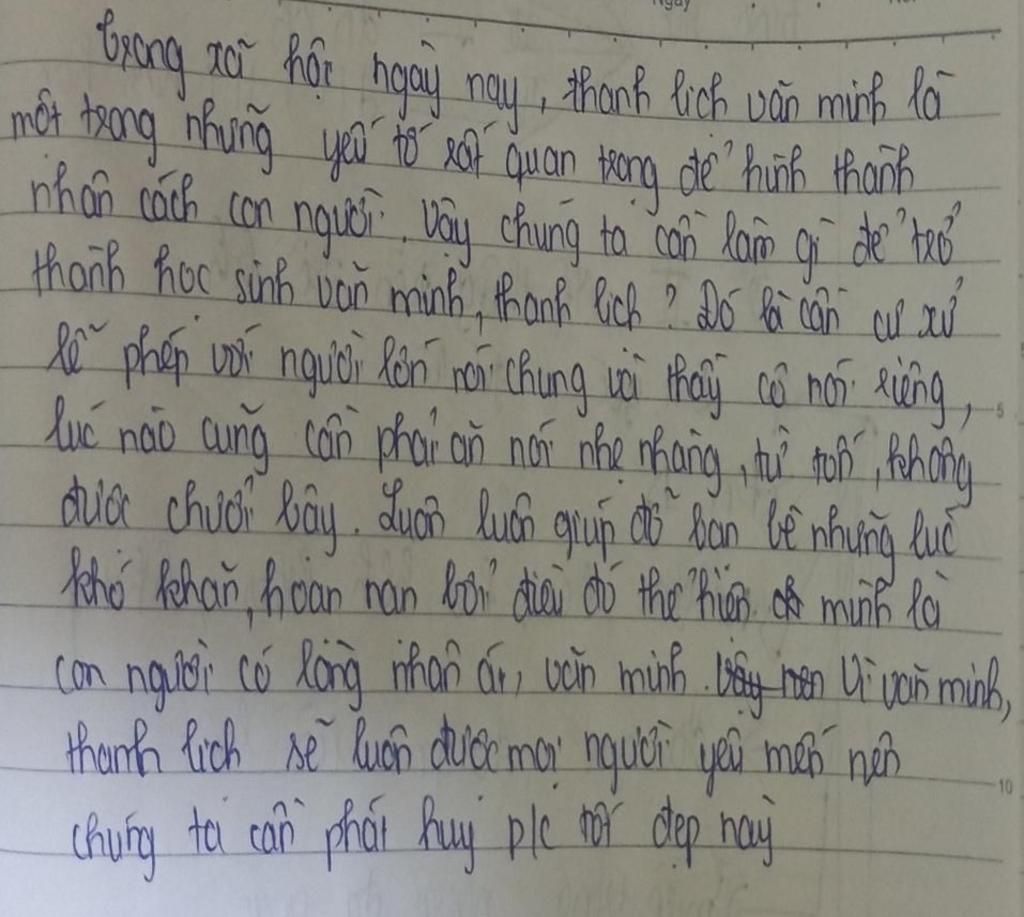 Ngày
trong xã hội ngày nay, thanh lịch văn minh là
một trong những yếu tố rất quan trọng để hình thành
nhân cách con người. Vậy chúng ta cần làm gì để trở
thành học sinh văn minh, thanh lịch? Đó là cần cư xử
lễ phép với người lớn nói chung và thầy cô nói riêng,
lúc nào cũng cần phải ăn nói nhẹ nhàng, từ tốn, không
được chửi bậy. Luôn luôn giúp đỡ bạn bè những lúc
khó khăn, hoạn nạn bởi điều đó thể hiện mình là
con người có lòng nhân ái, văn minh. Vậy nên Vì văn minh,
thanh lịch sẽ luôn được mọi người yêu mến nên
chúng ta cần phát huy p/c tốt đẹp này
5
10